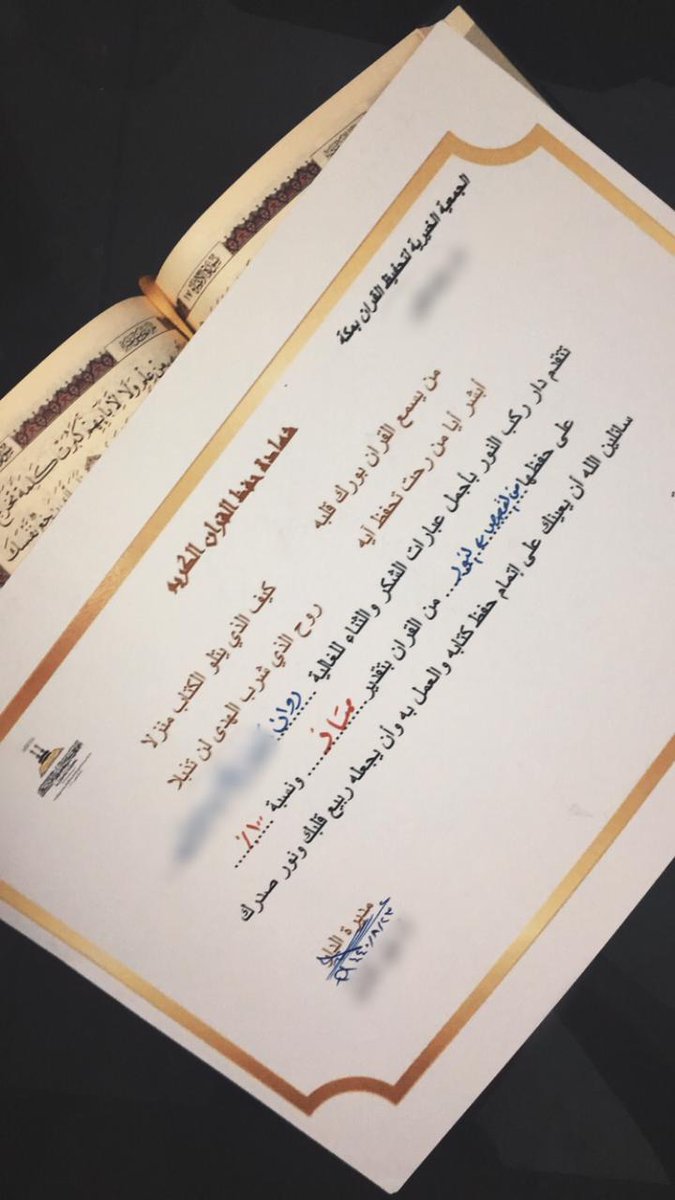 الجمعية الخيرية لتحفيظ القران بمكة
شهادة حفظ القران الكريم
من يسمع القران بورك قلبه كيف الذي يتلو الكتاب منزلا
أبشر أيا من رحت تحفظ آيه روح الذي شرب الهدى لن تذبلا
تتقدم دار ركب النور بأجمل عبارات الشكر والثناء للغالية روان
على حفظها من القران بتقدير ممتاز ونسبة ١٠٠٪
سائلين الله أن يعينك على إتمام حفظ كتابه والعمل به وأن يجعله ربيع قلبك ونور صدرك
مديرة الدار